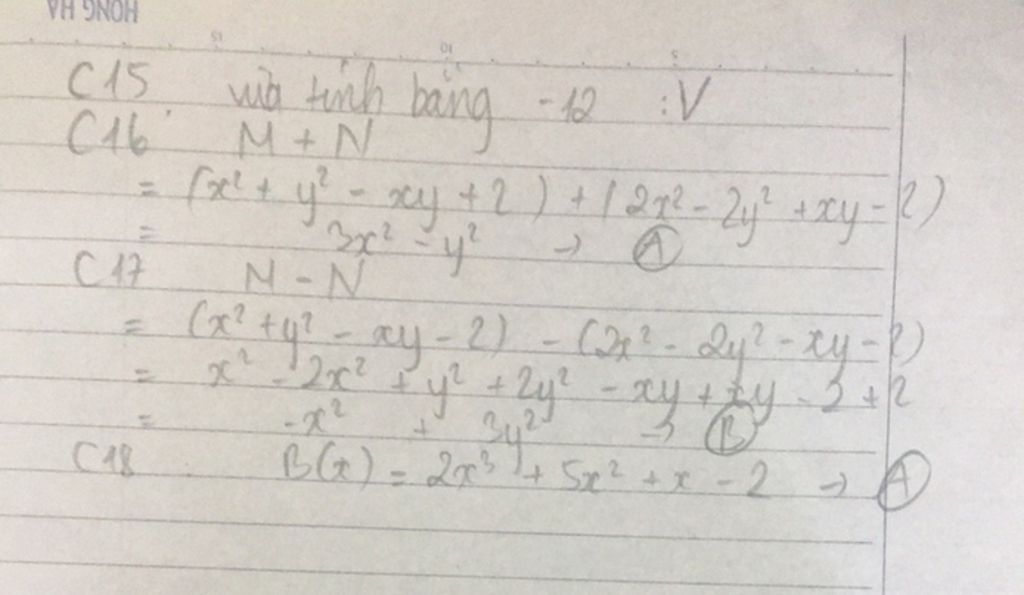 HỒNG HÀ
15 10 5
C15 vừa tính bằng -12 :V
C16 M + N
= (x² + y² - xy + 2) + (2x² - 2y² + xy - 2)
= 3x² - y² → Ⓐ
C17 M - N
= (x² + y² - xy - 2) - (2x² - 2y² - xy - 2)
= x² - 2x² + y² + 2y² - xy + xy - 2 + 2
= -x² + 3y² → Ⓑ
C18 B(x) = 2x³ + 5x² + x - 2 → Ⓐ